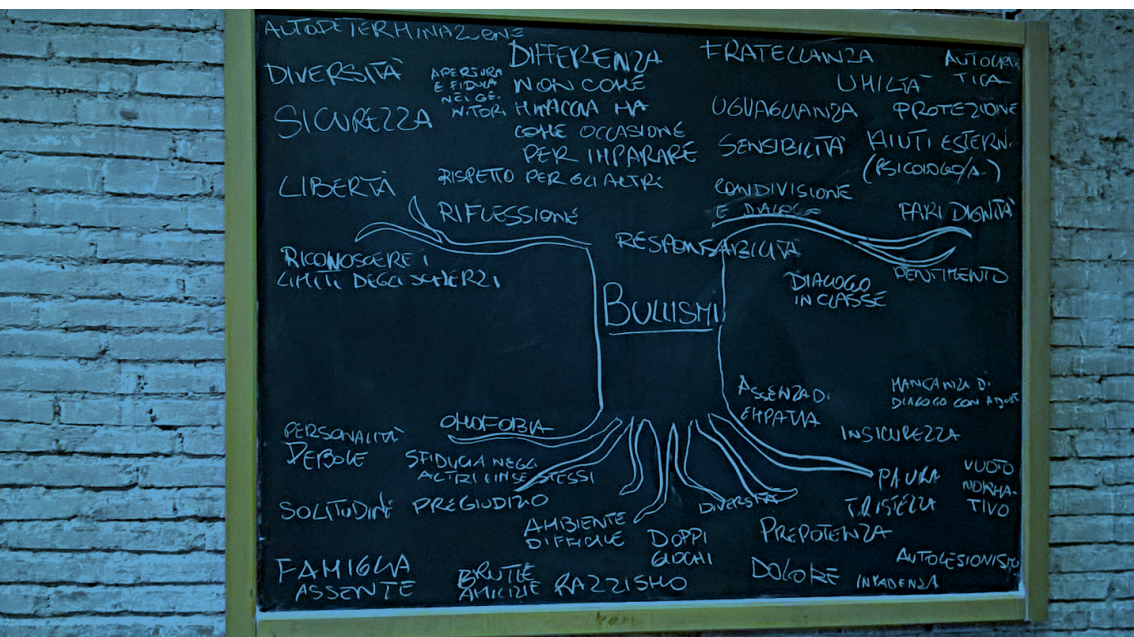 AUTODETERMINAZIONE
DIVERSITÀ
APERTURA
E FIDUCIA
NEI GE-
NITORI
DIFFERENZA
NON COME
MINACCIA MA
COME OCCASIONE
PER IMPARARE
FRATELLANZA
UMILTÀ
AUTOCRI-
TICA
SICUREZZA
UGUAGLIANZA
PROTEZIONE
SENSIBILITÀ
AIUTI ESTERNI
(PSICOLOGO/A)
LIBERTÀ
RISPETTO PER GLI ALTRI
CONDIVISIONE
E DIALOGO
RIFLESSIONE
PARI DIGNITÀ
RESPONSABILITÀ
RICONOSCERE I
LIMITI DEGLI SCHERZI
PENTIMENTO
DIALOGO
IN CLASSE
BULLISMI
ASSENZA DI
EMPATIA
MANCANZA DI
DIALOGO CON ADULTI
OMOFOBIA
PERSONALITÀ
DEBOLE
INSICUREZZA
SFIDUCIA NEGLI
ALTRI E IN SE STESSI
PAURA
VUOTO
NORMA-
TIVO
SOLITUDINE
PREGIUDIZIO
DIVERSITÀ
TRISTEZZA
AMBIENTE
DIFFICILE
DOPPI
GIOCHI
PREPOTENZA
FAMIGLIA
ASSENTE
BRUTTE
AMICIZIE
RAZZISMO
DOLORE
INVADENZA
AUTOLESIONISMO